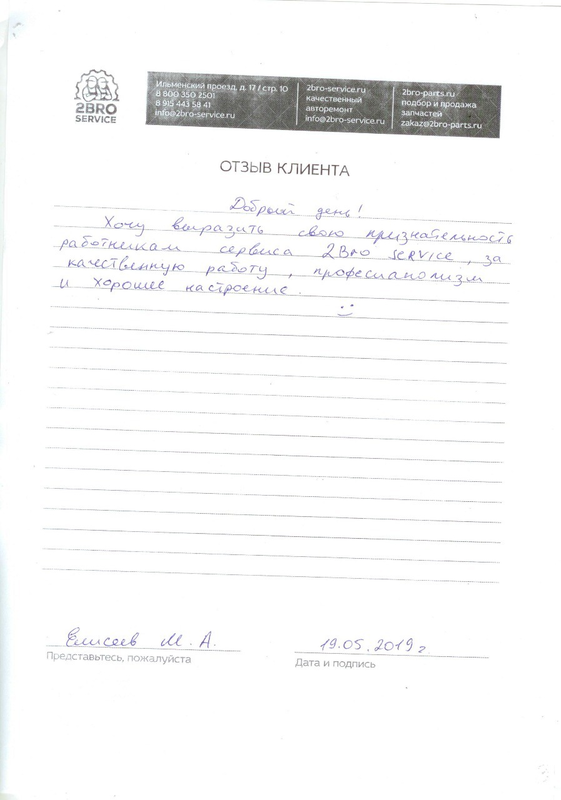 2BRO
SERVICE
Ильменский проезд, д. 17 / стр. 10
8 800 350 2501
8 915 443 58 41
info@2bro-service.ru
2bro-service.ru
качественный
авторемонт
info@2bro-service.ru
2bro-parts.ru
подбор и продажа
запчастей
zakaz@2bro-parts.ru
ОТЗЫВ КЛИЕНТА
Добрый день!
Хочу выразить свою признательность
работникам сервиса 2Bro SERVICE, за
качественную работу, професианолизм
и хорошее настроение.
Елисеев М. А.
19.05.2019г
Представьтесь, пожалуйста
Дата и подпись